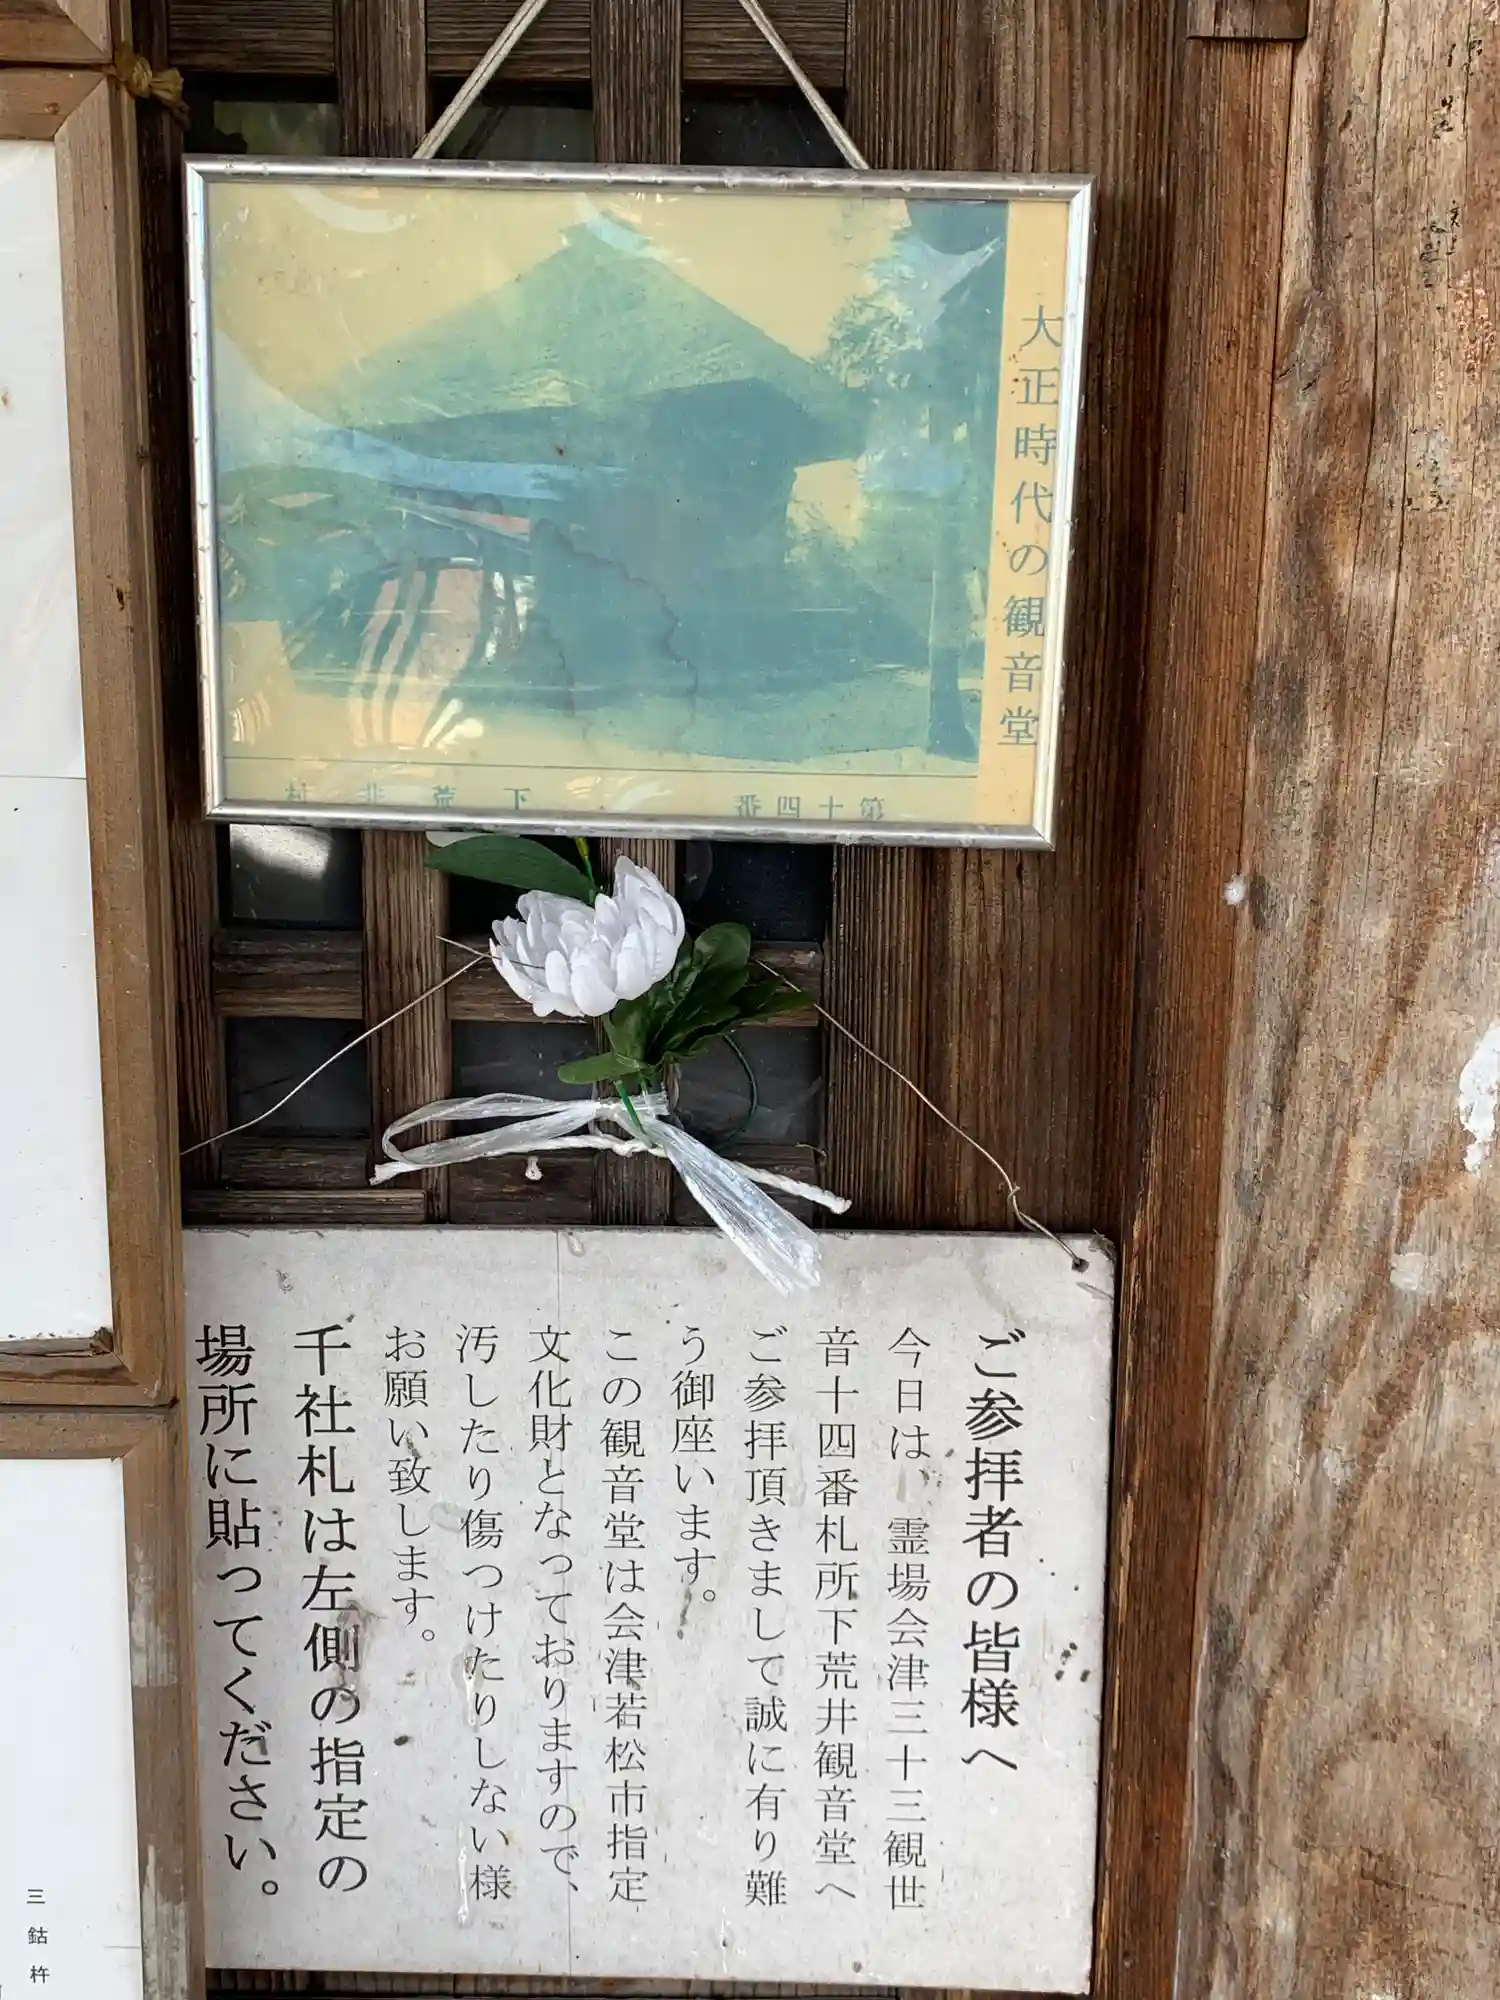 大正時代の観音堂
第十四番
下荒井村
ご参拝者の皆様へ
今日は、霊場会津三十三観世
音十四番札所下荒井観音堂へ
ご参拝頂きまして誠に有り難
う御座います。
この観音堂は会津若松市指定
文化財となっておりますので、
汚したり傷つけたりしない様
お願い致します。
千社札は左側の指定の
場所に貼ってください。
三鈷杵